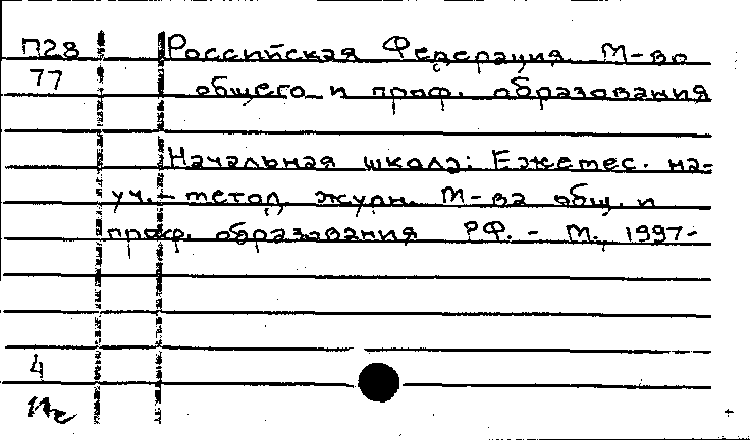 П28 Российская Федерация. М-во
77 общего и проф. образования
Начальная школа: Ежемес. на-
уч.-метод. журн. М-ва общ. и
проф. образования РФ. - М., 1997-
4